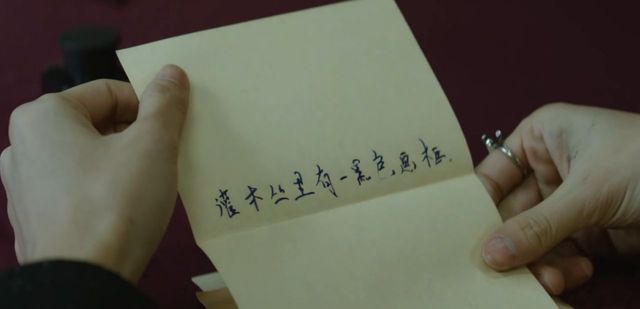 灌木丛里有一黑色画框.